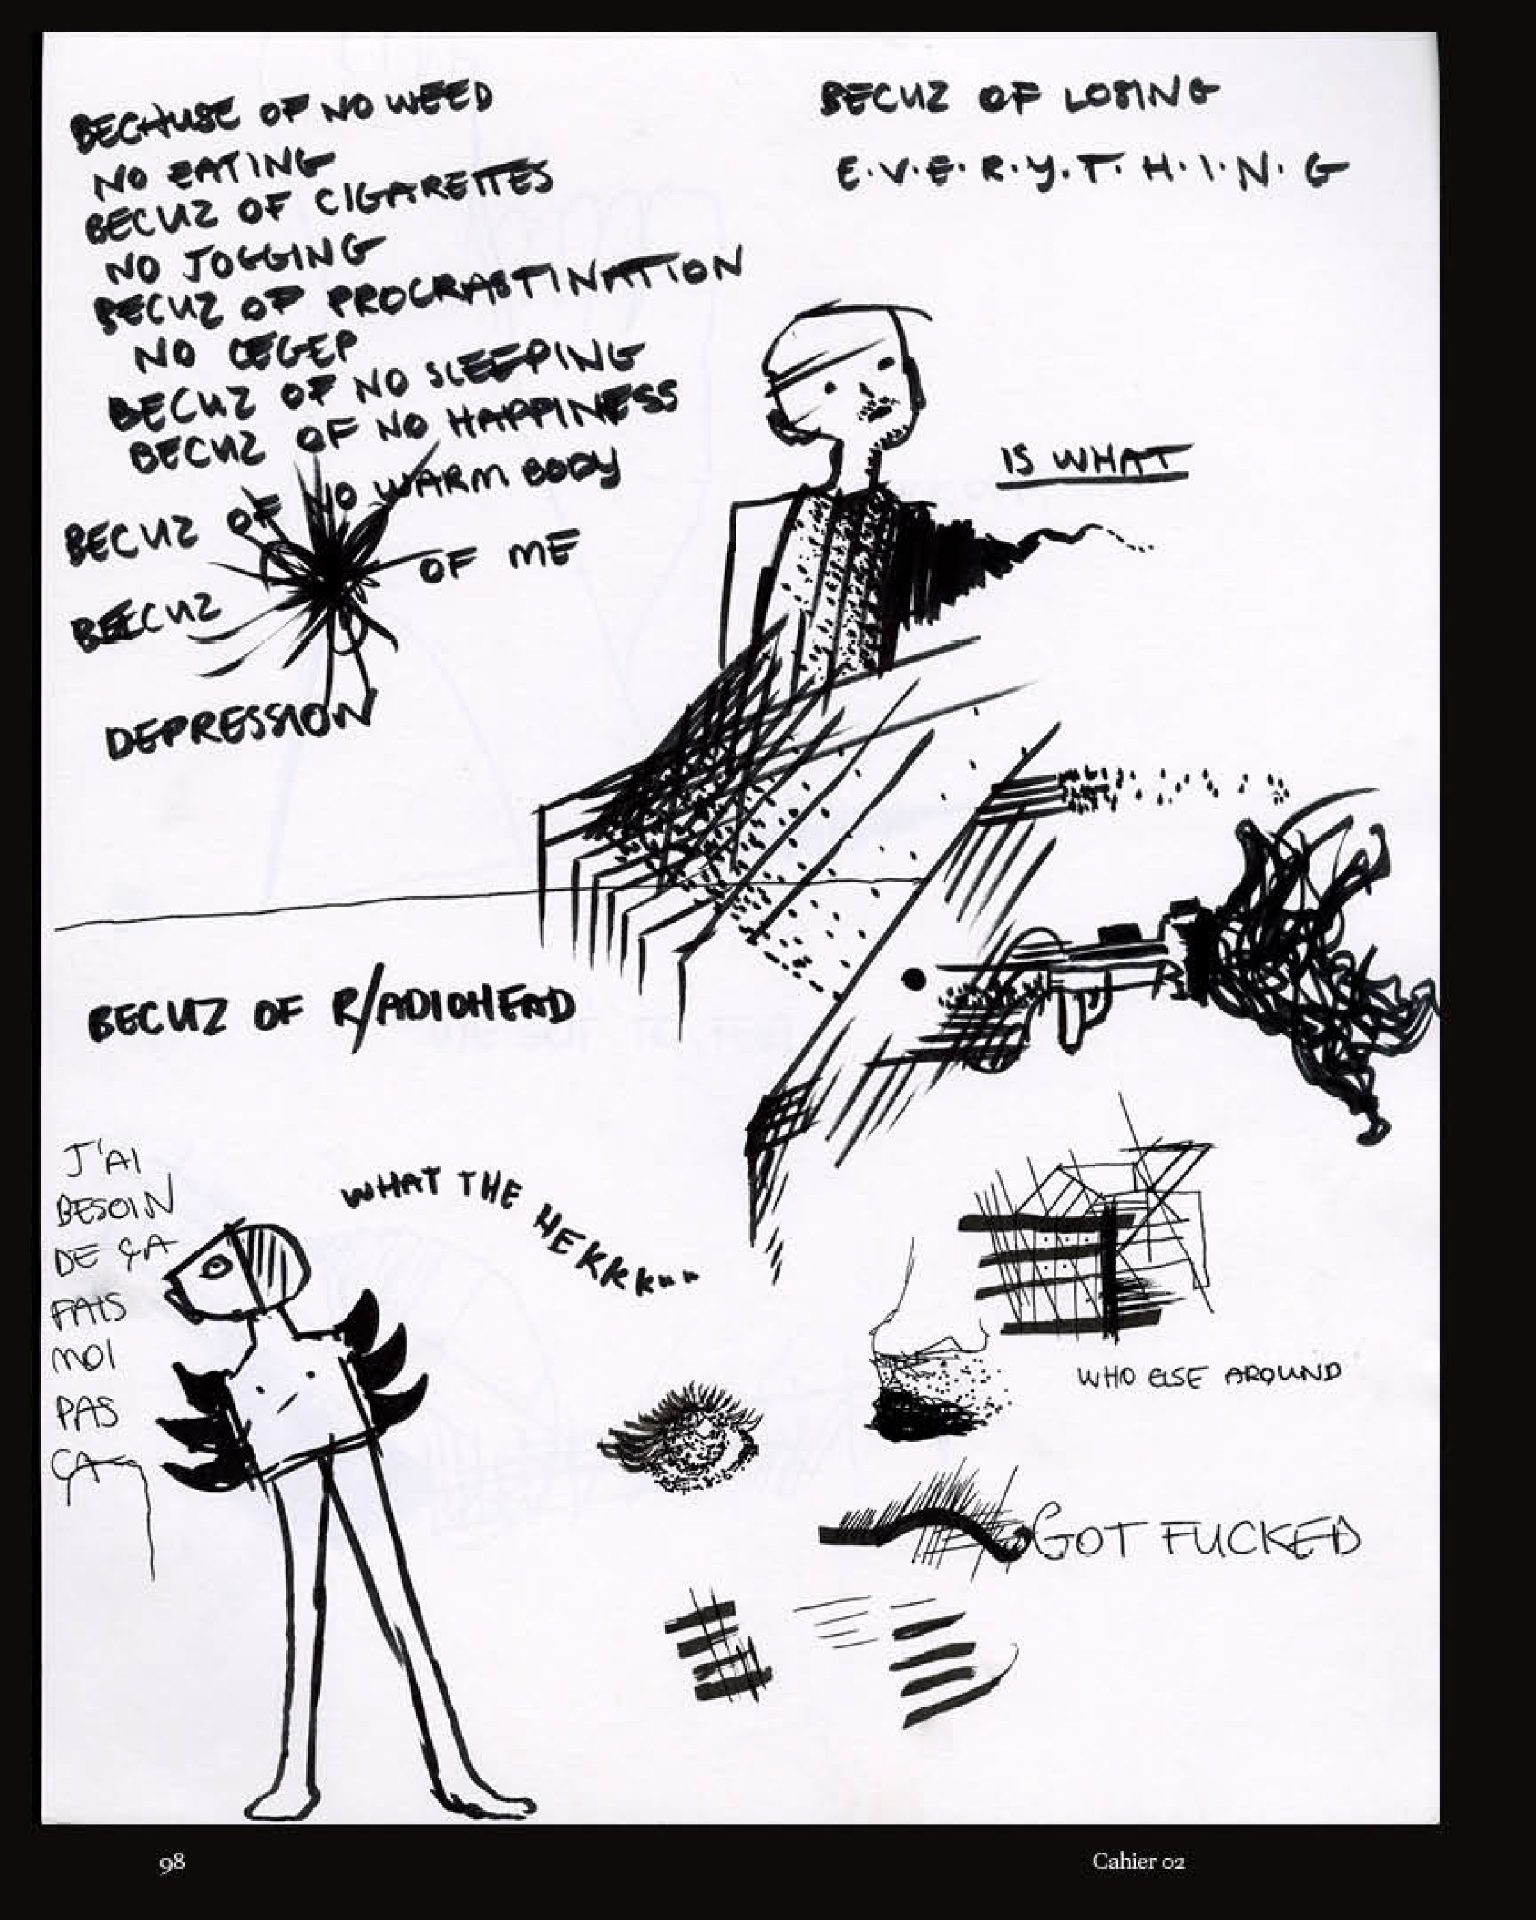 BECAUSE OF NO WEED
NO EATING
BECUZ OF CIGARETTES
NO JOGGING
BECUZ OF PROCRASTINATION
NO CEGEP
BECUZ OF NO SLEEPING
BECUZ OF NO HAPPINESS
BECUZ OF NO WARM BODY
BECUZ OF ME
DEPRESSION
BECUZ OF LOSING
E.V.E.R.Y.T.H.I.N.G
IS WHAT
BECUZ OF R/ADIOHEAD
J'AI
BESOIN
DE ÇA
FAIS
MOI
PAS
ÇA
WHAT THE HEKKK...
WHO ELSE AROUND
GOT FUCKED
98
Cahier 02